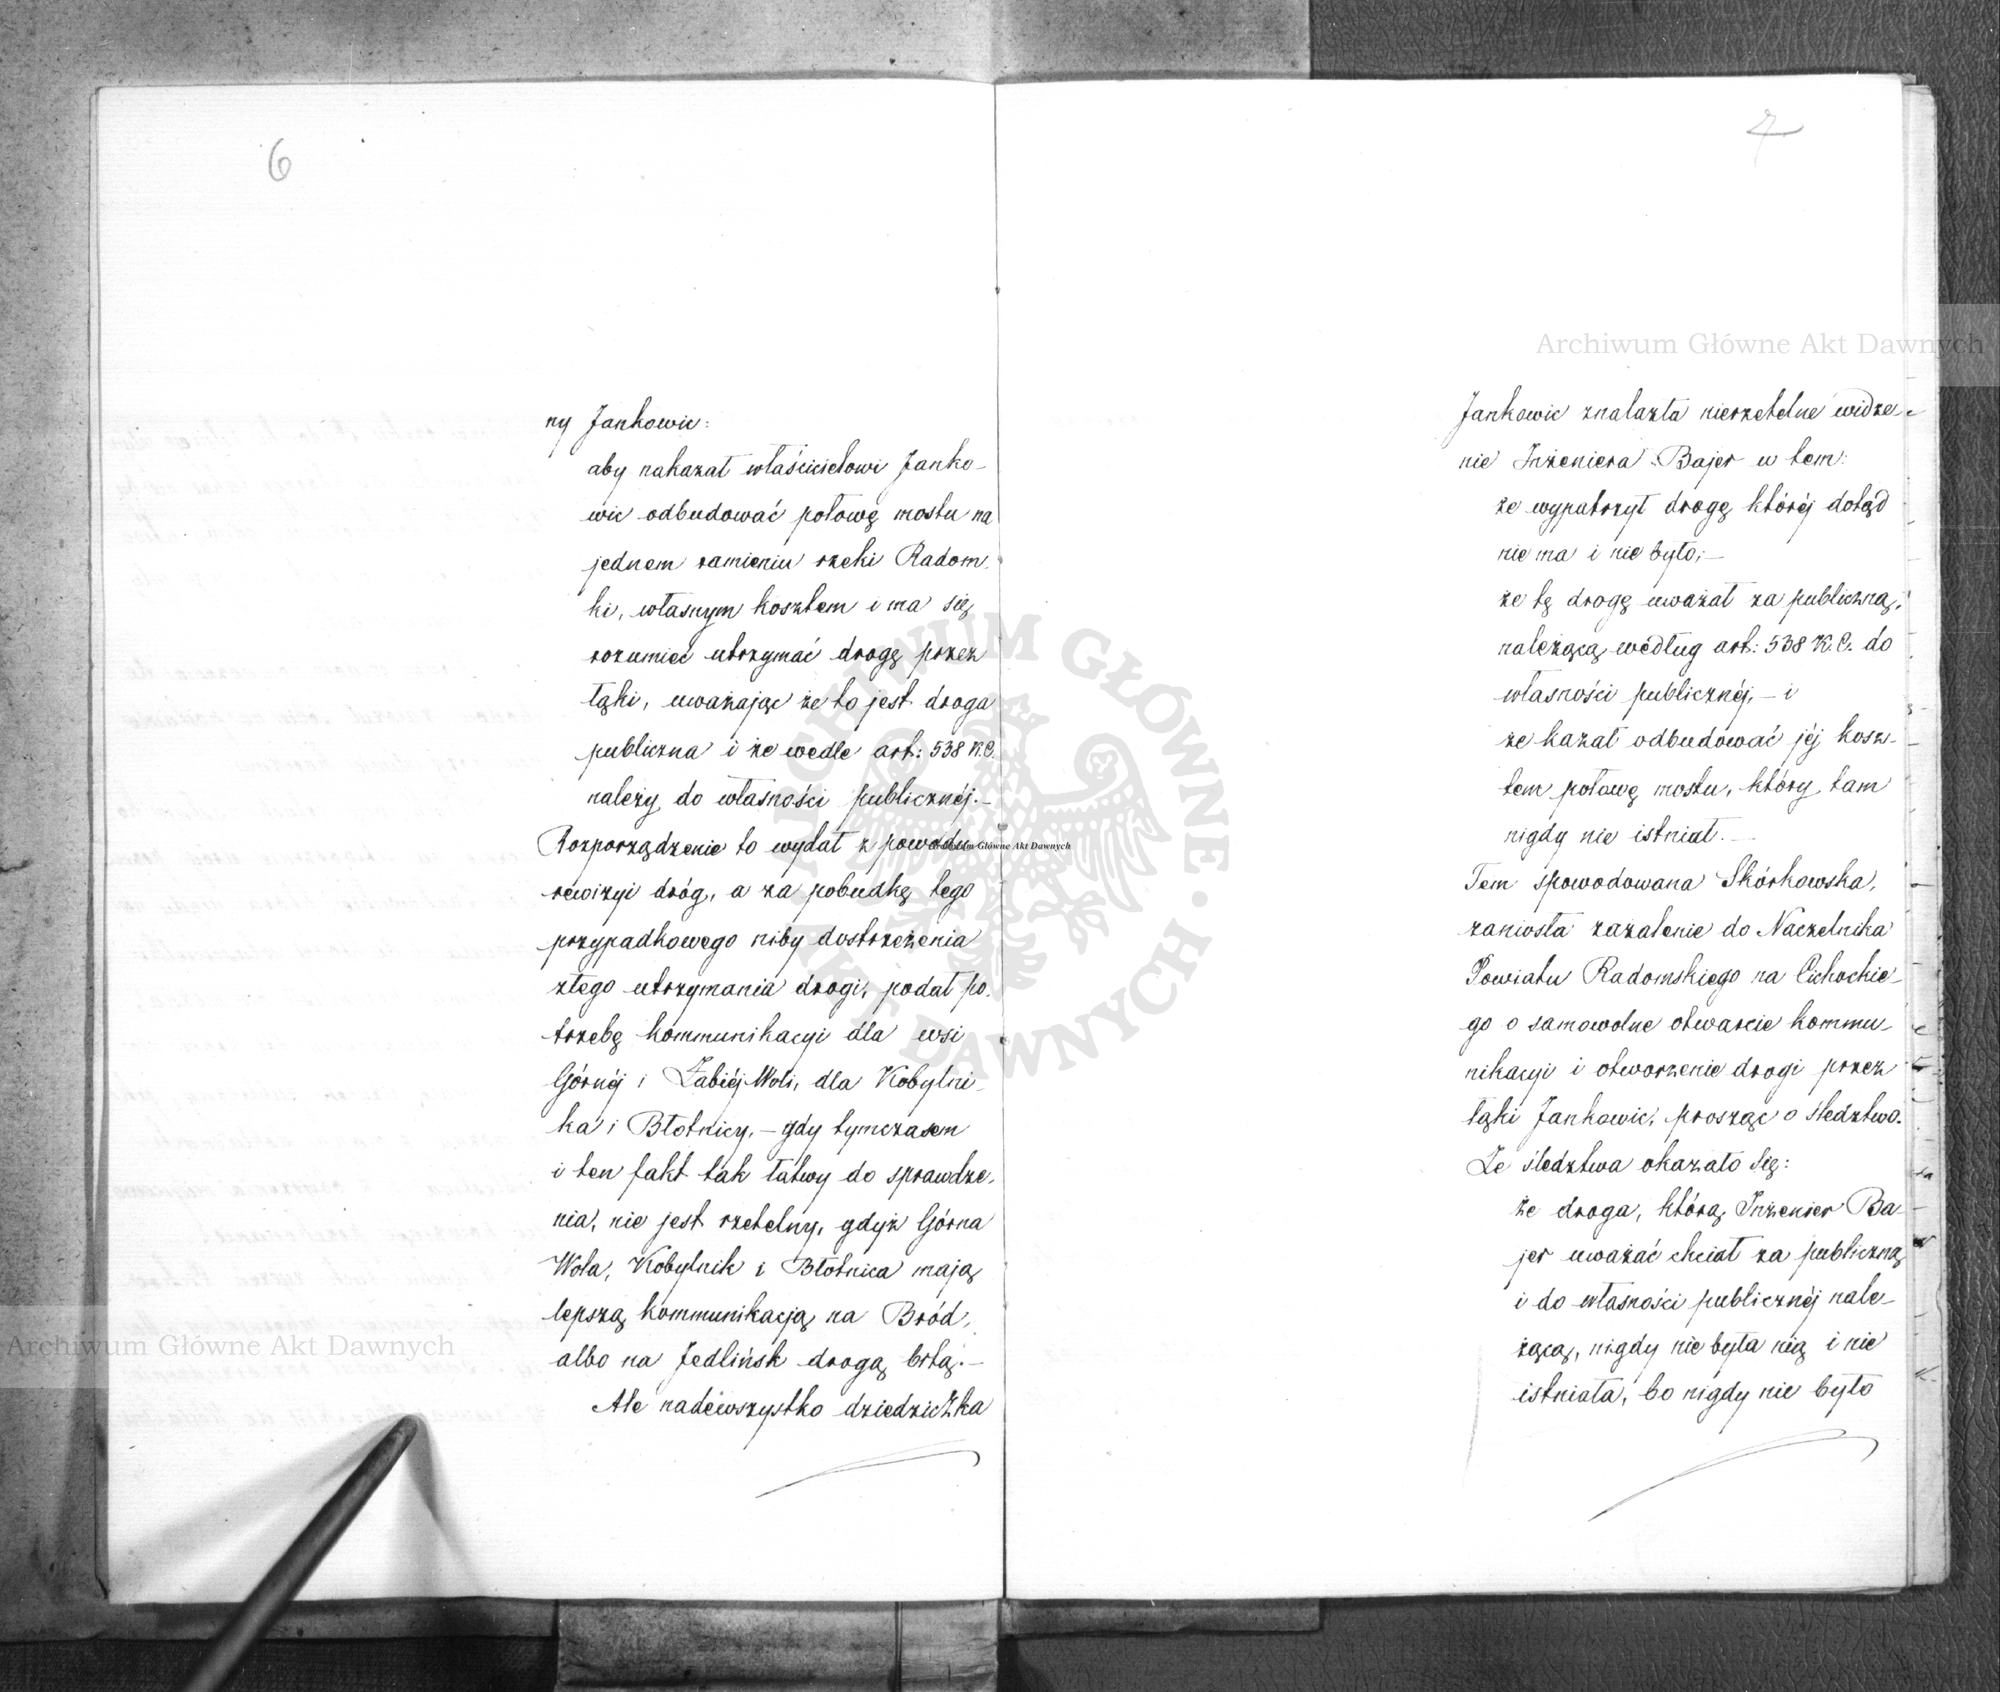 6
ny Jankowic:
aby nakazał właścicielowi Janko-
wic odbudować połowę mostu na
jednem ramieniu rzeki Radom-
ki, własnym kosztem i ma się
rozumieć utrzymać drogę przez
łąki, uważając że to jest droga
publiczna i że wedle art: 538 K.C.
należy do własności publicznéj.-
Rozporządzenie to wydał z powodu
rewizyi dróg, a za pobudkę tego
przypadkowego niby dostrzeżenia
złego utrzymania drogi, podał po-
trzebę kommunikacyi dla wsi
Górnéj i Żabiéj Woli, dla Kobylni-
ka i Błotnicy, - gdy tymczasem
i ten fakt tak łatwy do sprawdze-
nia, nie jest rzetelny, gdyż Górna
Wola, Kobylnik i Błotnica mają
lepszą kommunikacją na Bród,
albo na Jedlińsk drogą bitą.-
Ale nadewszystko dziedziczka
7
Jankowic znalazła nierzetelne widze-
nie Inżeniera Bajer w tem:
że wypatrzył drogę któréj dotąd
nie ma i nie było;-
że tę drogę uważał za publiczną,
należącą według art: 538 K.C. do
własności publicznéj, - i
że kazał odbudować jéj kosz-
tem połowę mostu, który tam
nigdy nie istniał.-
Tem spowodowana Skórkowska,
zaniosła zażalenie do Naczelnika
Powiatu Radomskiego na Cichockie-
go o samowolne otwarcie kommu-
nikacyi i otworzenie drogi przez
łąki Jankowic, prosząc o śledztwo.
Ze śledztwa okazało się:
że droga, którą Inżenier Ba-
jer uważać chciał za publiczną
i do własności publicznéj nale-
żącą, nigdy nie była nią i nie
istniała, bo nigdy nie było
Archiwum Główne Akt Dawnych
Archiwum Główne Akt Dawnych
Archiwum Główne Akt Dawnych
ARCHIWUM GŁÓWNE · AKT DAWNYCH ·